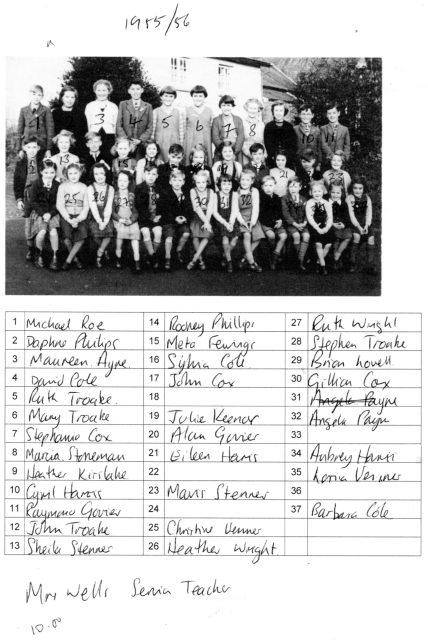 1955/56
1 Michael Roe 14 Rodney Phillips 27 Ruth Wright
2 Daphne Philips 15 Meta Fewings 28 Stephen Troake
3 Maureen Ayre 16 Sylvia Cole 29 Brian Lovell
4 David Cole 17 John Cox 30 Gillian Cox
5 Ruth Troake 18 31 Angela Payne
6 Mary Troake 19 Julie Keenor 32 Angela Payn
7 Stephanie Cox 20 Alan Govier 33
8 Marcia Stoneman 21 Eileen Harris 34 Aubrey Harris
9 Heather Kirslake 22 35 Lorna Venner
10 Cyril Harris 23 Mavis Stenner 36
11 Raymond Govier 24 37 Barbara Cole
12 John Troake 25 Christine Venner
13 Sheila Stenner 26 Heather Wright
Mrs Wells Senior Teacher
10.00